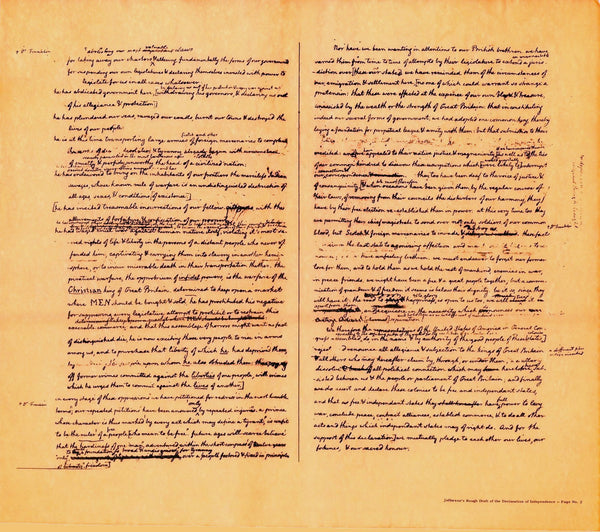 + Dr. Franklin
abolishing our most valuable laws
for taking away our charters & altering fundamentally the forms of our governments
for suspending our own legislatures & declaring themselves invested with power to
legislate for us in all cases whatsoever
he has abdicated government here, [withdrawing his governors, & declaring us out
of his allegiance & protection]
he has plundered our seas, ravaged our coasts, burnt our towns & destroyed the
lives of our people
he is at this time transporting large armies of foreign mercenaries to compleat
the works of death, desolation & tyranny already begun with circumstances
of cruelty & perfidy unworthy the head of a civilized nation
he has endeavored to bring on the inhabitants of our frontiers the merciless Indian
savages, whose known rule of warfare is an undistinguished destruction of
all ages, sexes, & conditions [of existence]
[he has incited treasonable insurrections of our fellow citizens with the
allurements of forfeiture & confiscation of our property
he has waged cruel war against human nature itself, violating it's most sa-
cred rights of life & liberty in the persons of a distant people who never of-
fended him, captivating & carrying them into slavery in another hemi-
sphere, or to incur miserable death in their transportation thither. this
piratical warfare, the opprobrium of infidel powers, is the warfare of the
Christian king of Great Britain determined to keep open a market
where MEN should be bought & sold, he has prostituted his negative
for suppressing every legislative attempt to prohibit or to restrain this
execrable commerce, and that this assemblage of horrors might want no fact
of distinguished die, he is now exciting those very people to rise in arms
among us, and to purchase that liberty of which he has deprived them,
by murdering the people upon whom he also obtruded them; thus paying
off former crimes committed against the liberties of one people, with crimes
which he urges them to commit against the lives of another.]
in every stage of these oppressions we have petitioned for redress in the most humble
terms; our repeated petitions have been answered by repeated injuries. a prince
whose character is thus marked by every act which may define a tyrant, is unfit
to be the ruler of a people [who mean to be free. future ages will scarce believe
+ Dr. Franklin
that the hardiness of one man, adventured within the short compass of twelve years
over a people fostered & fixed in principles
of freedom]
Nor have we been wanting in attentions to our British brethren. we have
warned them from time to time of attempts by their legislature to extend a juris-
diction over [these our states] we have reminded them of the circumstances of
our emigration & settlement here, [no one of which could warrant so strange a
pretension: that these were effected at the expence of our own blood & treasure,
unassisted by the wealth or the strength of Great Britain: that in constituting
indeed our several forms of government, we had adopted one common king, thereby
laying a foundation for perpetual league & amity with them: but that submission to their
credited: and we appealed to their native justice & magnanimity as well as to the ties
of our common kindred to disavow these usurpations which were likely to interrupt
they too have been deaf to the voice of justice &
of consanguinity, [& when occasions have been given them, by the regular course of
their laws, of removing from their councils the disturbers of our harmony, they
have by their free election re-established them in power. at this very time too they
are permitting their chief magistrate to send over not only soldiers of our common
blood, but Scotch & foreign mercenaries to invade & destroy us. these facts
have given the last stab to agonizing affection, and manly spirit bids us to re-
nounce for ever these unfeeling brethren. we must endeavor to forget our former
love for them, and to hold them as we hold the rest of mankind, enemies in war,
in peace friends. we might have been a free & a great people together; but a commu-
nication of grandeur & of freedom it seems is below their dignity. be it so, since they
will have it: the road to happiness & to glory is open to us too; we will climb it
and acquiesce in the necessity which denounces our
We therefore the representatives of the United States of America in General Congress
assembled do, in the name & by authority of the good people of these [states]
reject and renounce all allegiance & subjection to the kings of Great Britain
& all others who may hereafter claim by, through, or under them; we utterly
dissolve all political connection which may have heretofore sub-
sisted between us & the people or parliament of Great Britain; and finally
we do assert and declare these colonies to be free and independant states,
and that as free & independant states they have full power to levy
war, conclude peace, contract alliances, establish commerce, & to do all other
acts and things which independant states may of right do. And for the
support of this declaration we mutually pledge to each other our lives, our
fortunes, & our sacred honour.
Jefferson's Rough Draft of the Declaration of Independence — Page No. 2